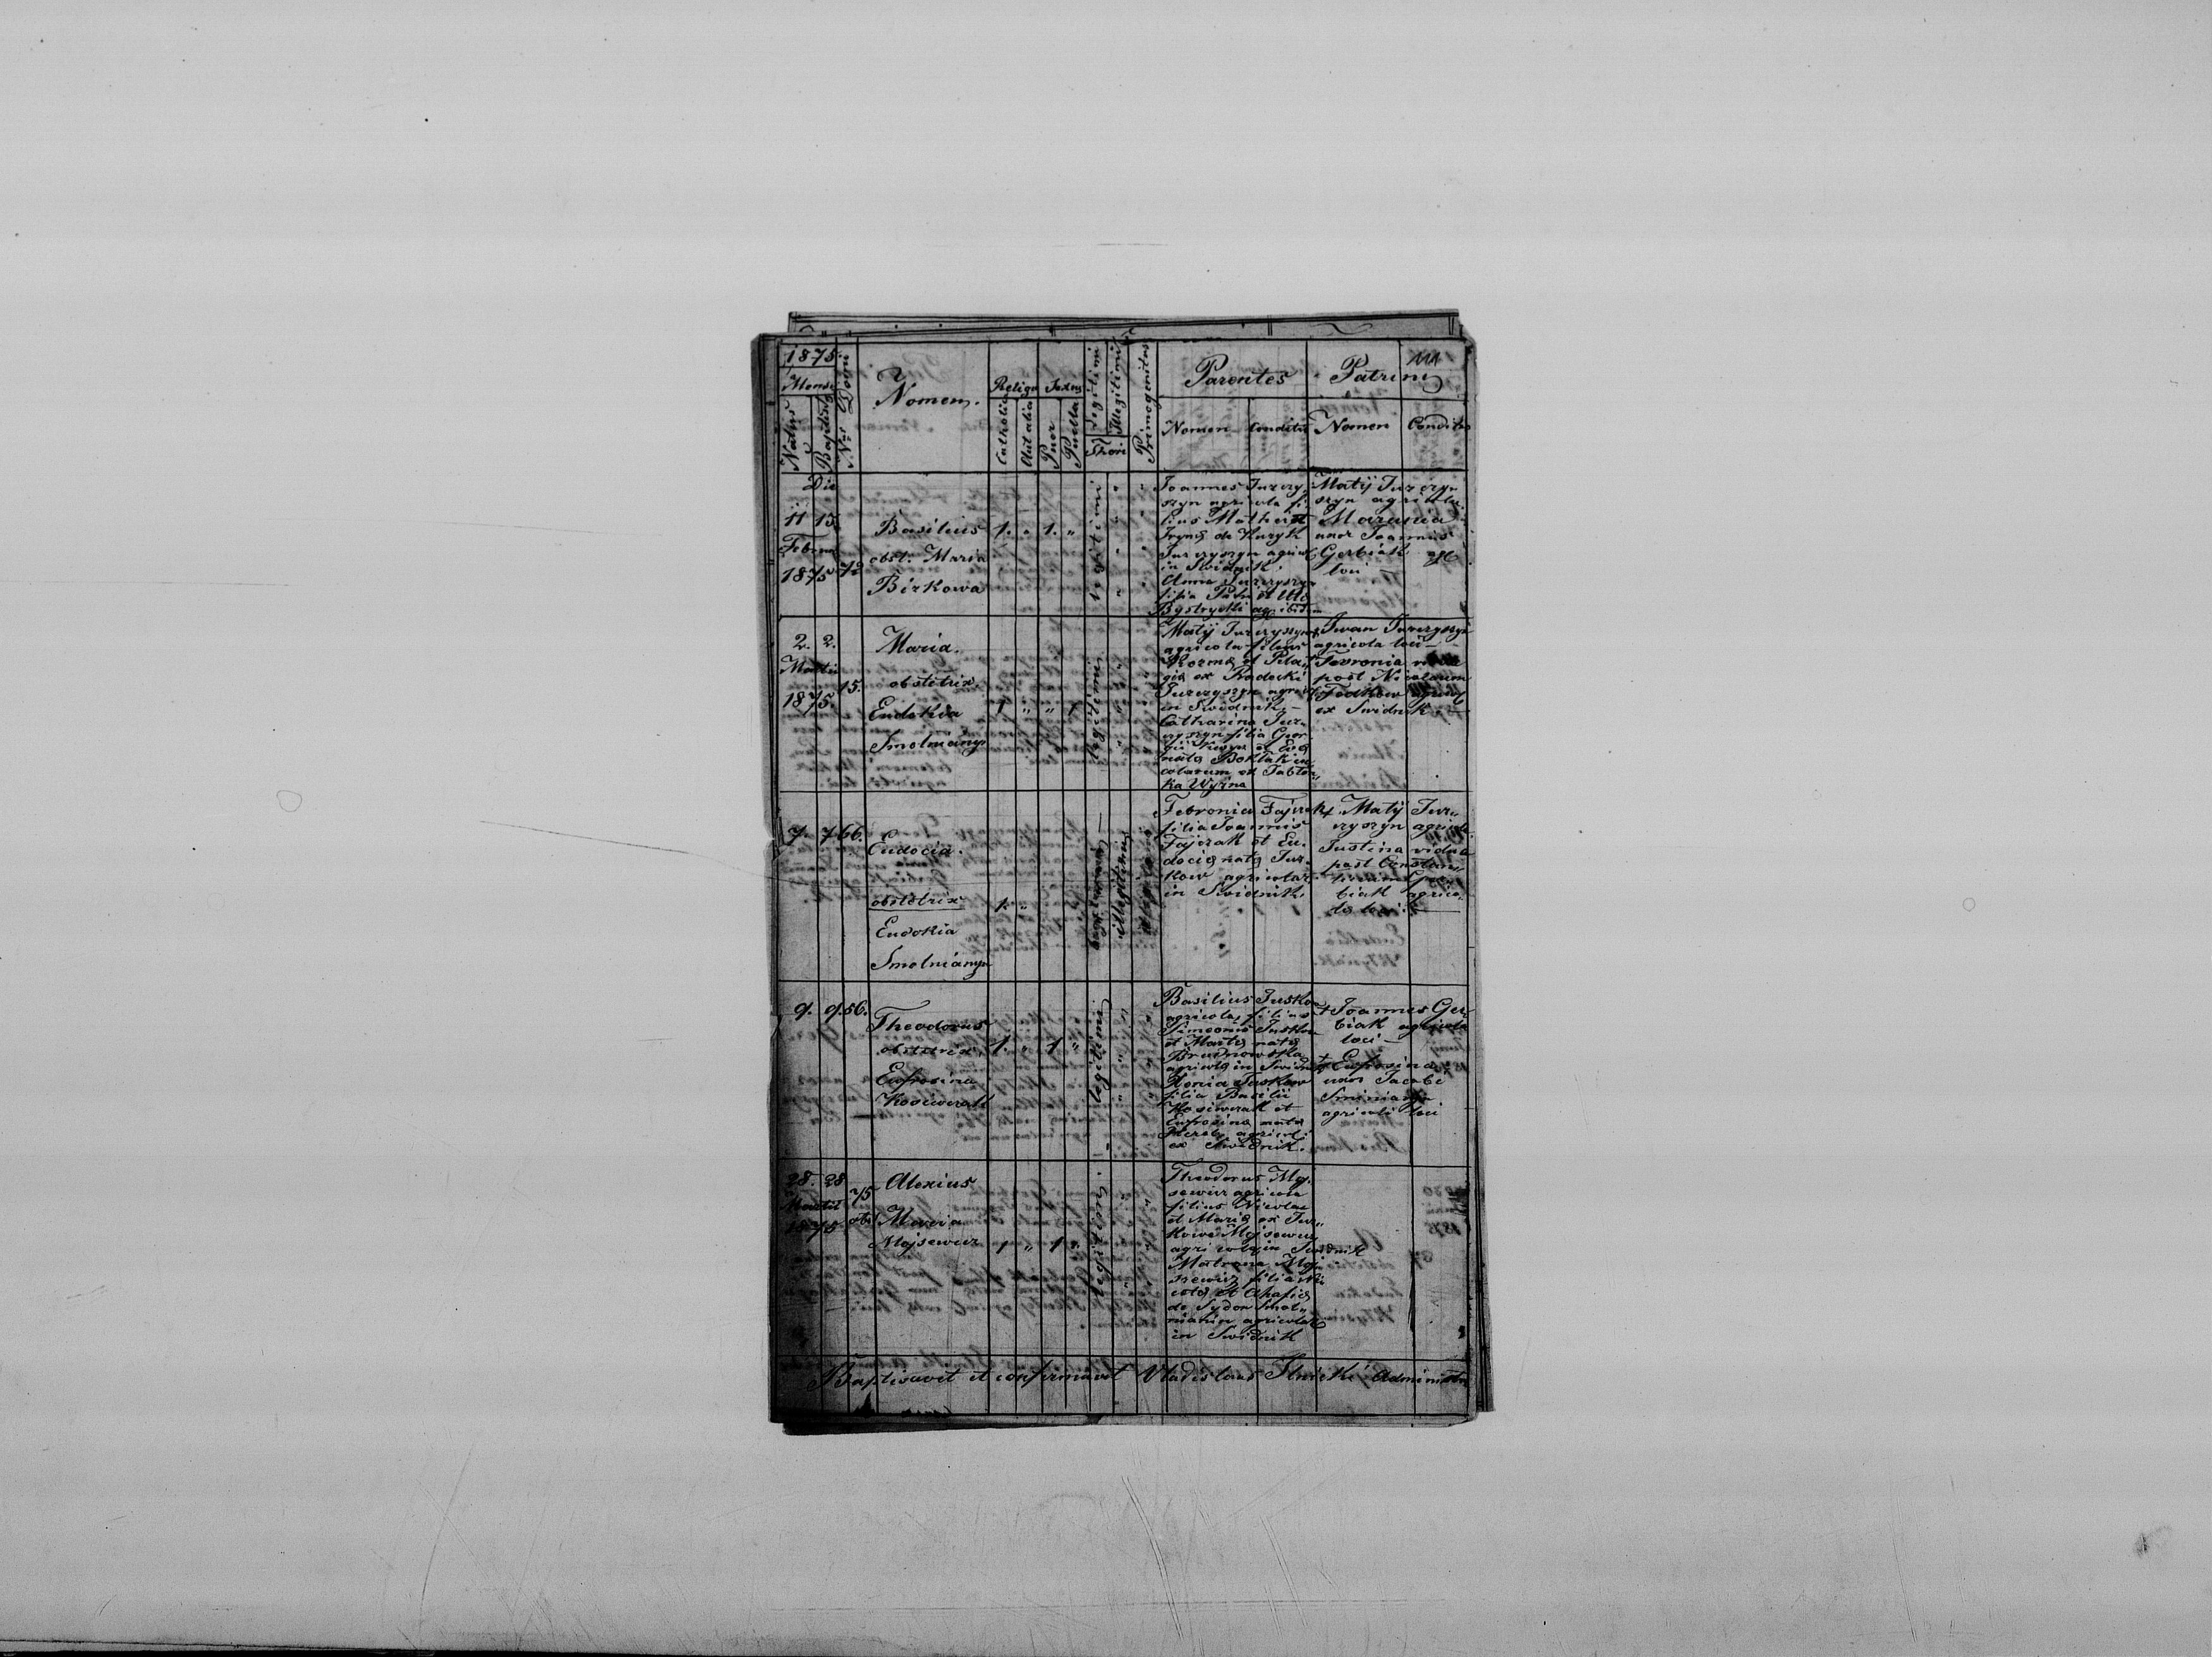 1875
Mense
Natus
Baptisatus
Nrs Domi
Nomen.
Religio
Catholica
Aut alia
Sexus
Puer
Puella
Legitimi
Illegitimi
Thori
Primogenitus
Parentes
Nomen
Conditio
Patrini
Nomen
Conditio
111
Die
11 15
1875
Basilius
obst. Maria
Birkowa
1. " 1. "
legitimi
Joannes Jurczy
szyn agricola fi
lius Mathei et
in Swidnik.
Anna Jurczyszyn
Bystrycki agr. ibidem
Matij Jurczy
szyn agricola
Marunia
uxor Joannis
Gerbiak
loci —
2. 2.
Martii
1875.
15.
Maria.
obstetrix
Eudokia
Smolnianyn
1 " " 1
legitimi
Matij Jurczyszyn
agricola filius
Kozmę et Pela
gię ex Radecki
Jurczyszyn agric
in Swidnik —
Catharina Jur
czyszyn filia Geor
natę Boklak in
colarum ex Jablon
ka Wyżna
Iwan Jurczyszyn
agricola loci —
Fevronia
post Nicolaum
Fedkow
ex Swidnik —
7. 7 66.
Eudocia.
obstetrix
Eudokia
Smolnianyn
1. "
illegitimi
Febronia Fajczak
filia Joannis
Fajczak et Eu
docię natę Jus
kow agricolar
in Swidnik.
Matij Jur
czyszyn agricola
Justina vidua
post Constan
biak agrico
lę loci —
9. 9. 56.
Theodorus
obstetrix
Eufrosina
Kosiwczak
1. " 1 "
legitimi
Basilius Juskow
agricola, filius
Simeonis Juskow
et Martę natę
Brudnowska
agricolę in Swidnik
Xenia Juskow
filia Basilii
Kosiwczak et
Eufrosinę natę
ex Swidnik.
+ Joannes Ger
biak agricola
loci —
+ Eufrosina
uxor Jacobi
agricolę loci
28. 28
Martii
1875
75
obs
Alexius
Maria
Mojsewicz
1 " 1 "
legitimi
Theodorus Moj
sewicz agricola
filius Nicolae
et Marię ex Jus
kow Mojsewicz
agricolę in Swidnik
Matrona Moj
sewicz filia Ni
colę et Ahafię
de Sydor Smol
nianin agricolar
in Swidnik
Baptisavit et confirmavit Vladislaus Ilnicki Administr